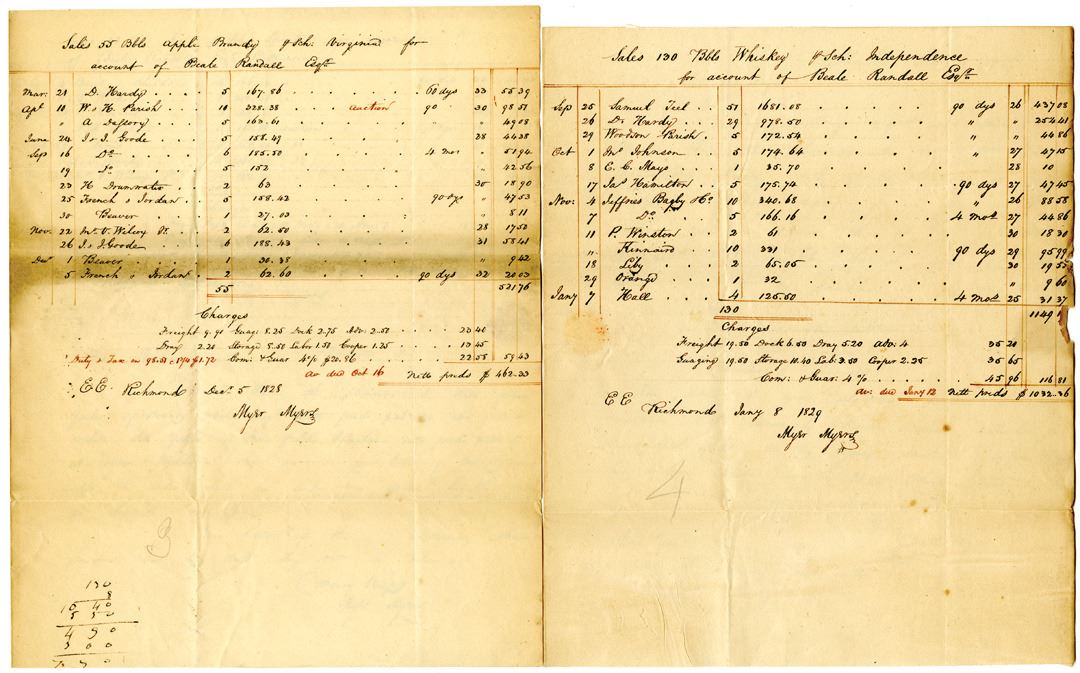 Sales 55 Bbls Apple Brandy p Sch: Virginia for
account of Beale Randall Esqr.
Mar: 21 D. Hardy . . . 5 167.86 60 dys 33 55 39
Apl 10 W & H. Parish . . . 10 328.38 auction 90 30 98 51
" " A 5 163.61 " 49 08
June 24 I & I. Goode . . . 5 158.49 28 44 38
Sep 16 Do 6 185.50 4 mos " 51 94
19 Do 5 152 42 56
23 H Drumwater . . 2 63 30 18 90
25 French & Jordan . . 5 158.42 90 dys " 47 53
30 Beaver . . . 1 27.03 " 8 11
Nov. 22 . . 2 62.50 28 17 50
26 I & I. Goode . . 6 188.43 31 58 41
Decr 1 Beaver . . . 1 30.38 " 9 42
5 French & Jordan . . 2 62.60 90 dys 32 20 03
55 521 76
Charges
Freight 9.90 Guag: 8.25 Dock 2.75 Adv: 2.50 . . . 23 40
Dray 2.20 Storage 5.50 Labor 1.50 Cooper 1.25 . . . 10 45
Duty & Tax on 98.51 c 1¾ $1.72 Com: & Guar 4 p/c $20.86 . . . . 22 58 59 43
Av due Oct 16 Nett prods $ 462.33
E E. Richmond Decr. 5 1828
Myer Myers
3
130
8
10 40
5 50
4 50
3 00
Sales 130 Bbls Whiskey p Sch: Independence
for account of Beale Randall Esqr.
Sep 25 Samuel Teel . . 51 1681.08 90 dys 26 437 08
26 D. Hardy . . . 29 978.50 " " 254 41
29 Woodson & Parish . . 5 172.54 " " 44 86
Oct 1 Jno Johnson . . . 5 174.64 " 27 47 15
8 E. C. Mayo . . . 1 35.70 28 10
17 Jas Hamilton . . . 5 175.74 90 dys 27 47 45
Nov: 4 Jeffries Bagby & Co . 10 340.68 " 26 88 58
7 Do. . . . 5 166.16 4 mos 27 44 86
11 P. Winston . . . 2 61 30 18 30
" Kinnaird . . . 10 331 90 dys 29 95 99
18 Liby . . . 2 65.05 30 19 5
29 Orange . . . 1 32 " 9 60
Jany 7 Hall . . . 4 125.50 4 mos 25 31 37
130 1149 1
Charges
Freight 19.50 Dock 6.50 Dray 5.20 Adv: 4 35 20
Guaging 19.50 Storage 10.40 Lab: 3.50 Cooper 2.25 35 65
Com: & Guar: 4 % . . . . . 45 96 116 81
Av: due Jany 12 Nett prods $ 1032.36
E E Richmond Jany 8 1829
Myer Myers
4